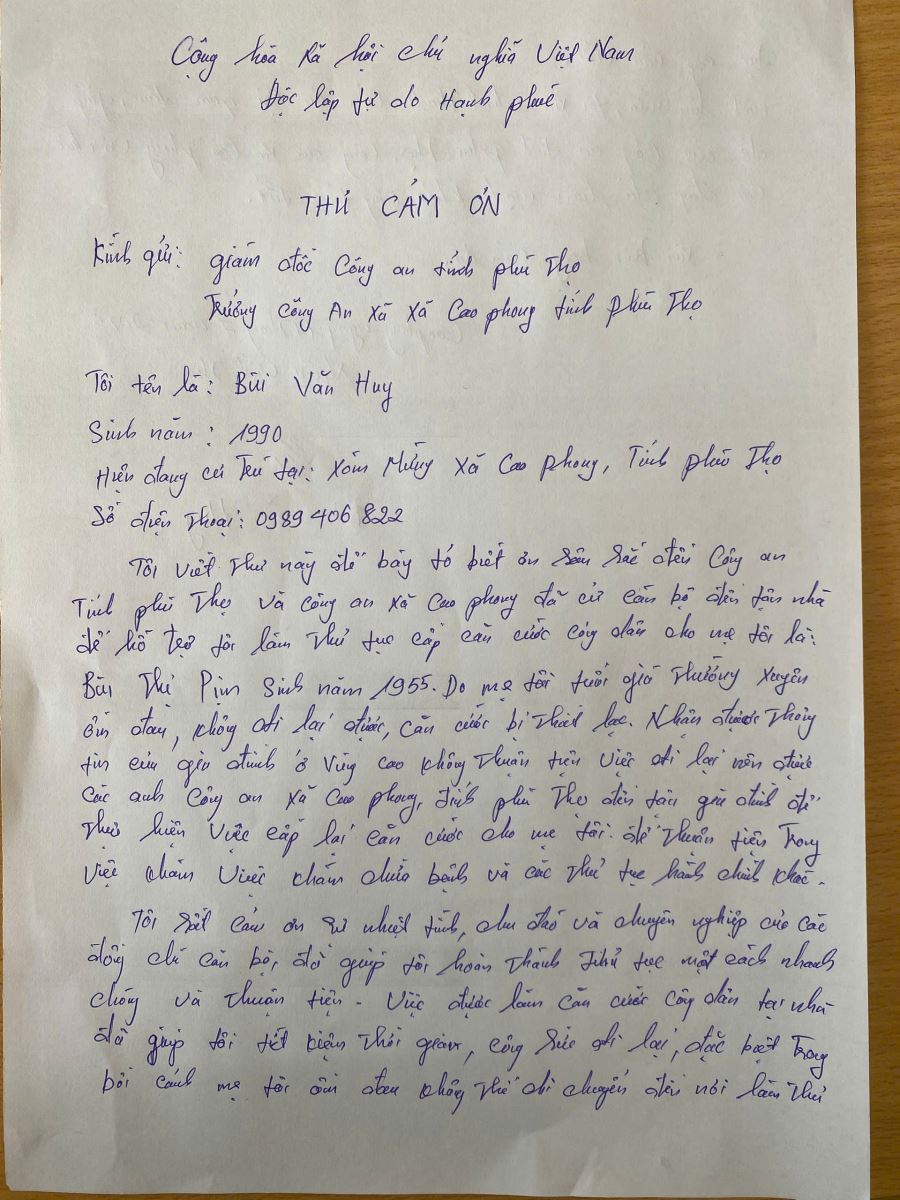 Cộng hòa xã hội chủ nghĩa Việt Nam
Độc lập tự do Hạnh phúc
THƯ CẢM ƠN
Kính gửi: giám đốc Công an tỉnh phú Thọ
Trưởng công An xã xã Cao phong tỉnh Phú Thọ
Tôi tên là: Bùi Văn Huy
Sinh năm: 1990
Hiện đang cư trú tại: Xóm Mừng xã Cao phong, Tỉnh phú Thọ
Số điện thoại: 0989 406 822
Tôi viết thư này để bày tỏ biết ơn sâu sắc đến Công an
Tỉnh phú Thọ và công an xã Cao phong đã cử cán bộ đến tận nhà
để hỗ trợ tôi làm thủ tục cấp căn cước công dân cho mẹ tôi là:
Bùi Thị Pịn Sinh năm 1955. Do mẹ tôi tuổi già thường xuyên
ốm đau, không đi lại được, căn cước bị thất lạc. Nhận được thông
tin của gia đình ở vùng cao không thuận tiện việc đi lại nên được
các anh Công an xã Cao phong, tỉnh phú Thọ đến tận gia đình để
thực hiện việc cấp lại căn cước cho mẹ tôi. để thuận tiện trong
việc khám việc khám chữa bệnh và các thủ tục hành chính khác.
Tôi rất cảm ơn sự nhiệt tình, chu đáo và chuyên nghiệp của các
đồng chí cán bộ, đã giúp tôi hoàn thành thủ tục một cách nhanh
chóng và thuận tiện. Việc được làm căn cước công dân tại nhà
đã giúp tôi tiết kiệm thời gian, công sức đi lại, đặc biệt trong
bối cảnh mẹ tôi ốm đau không thể di chuyển đến nơi làm thủ